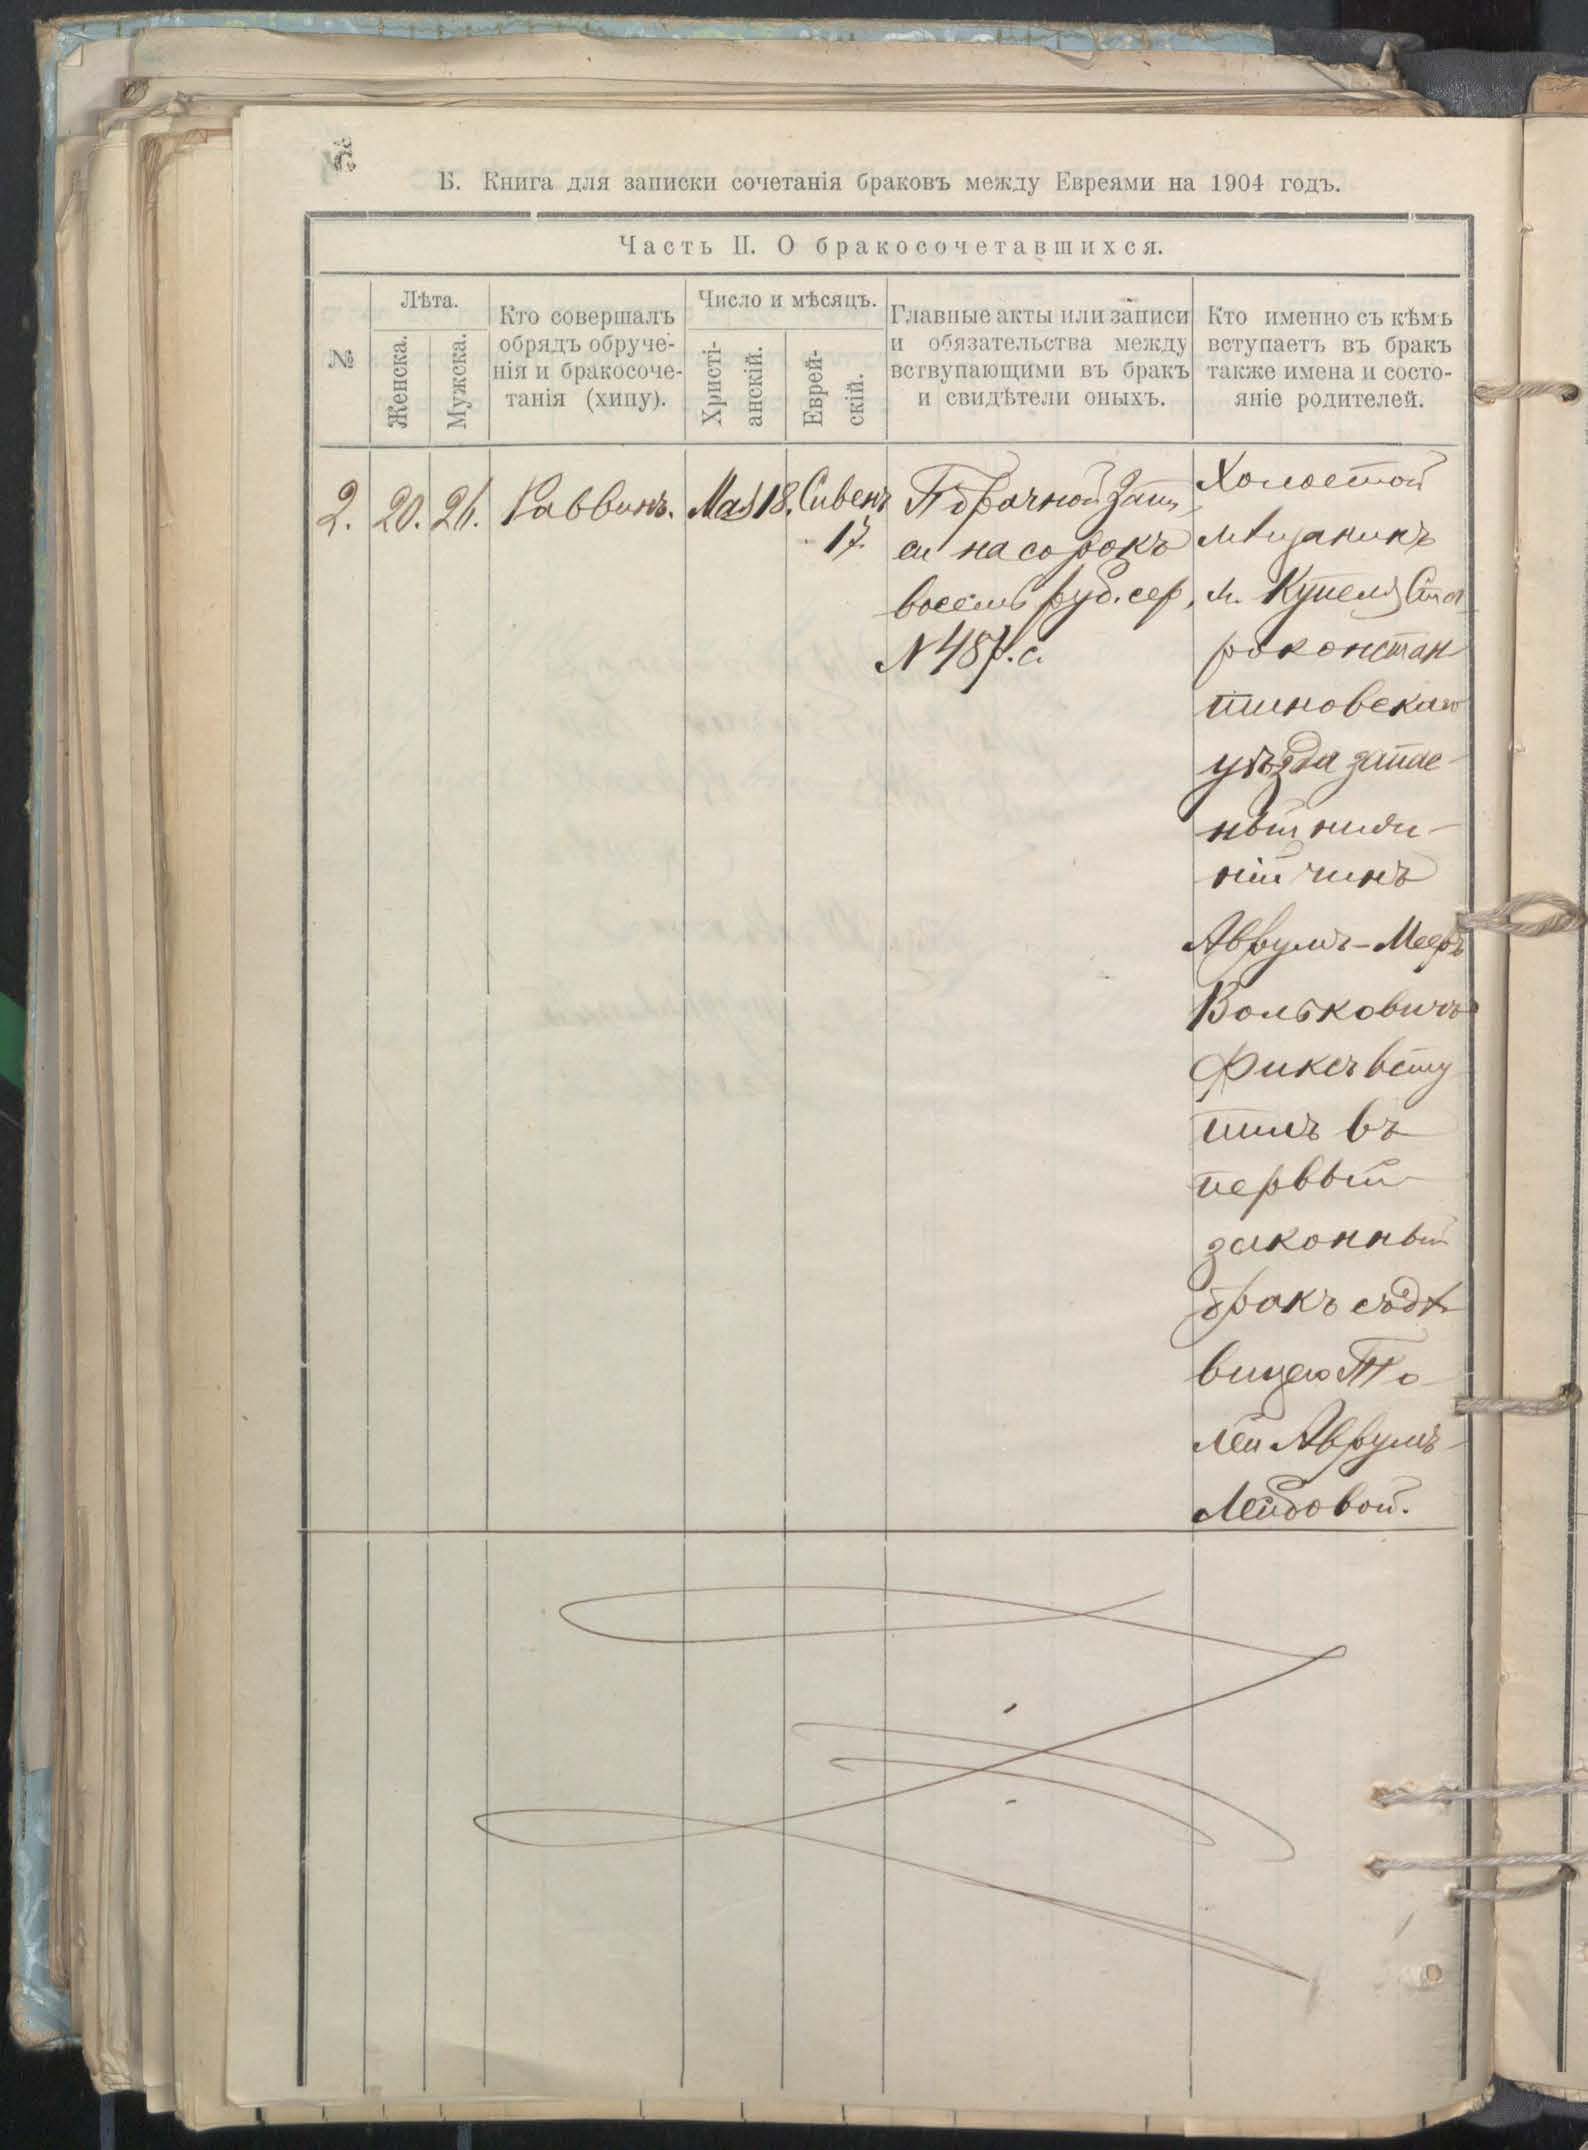 Б. Книга для записки сочетанія браковъ между Евреями на 1904 годъ.
Часть II. О бракосочетавшихся.
№
Лѣта.
Женска.
Мужска.
Кто совершалъ
обрядъ обруче-
нія и бракосоче-
танія (хипу).
Число и мѣсяцъ.
Христі-
анскій.
Еврей-
скій.
Главные акты или записи
и обязательства между
вствупающими въ бракъ
и свидѣтели оныхъ.
Кто именно съ кѣмъ
вступаетъ въ бракъ
также имена и состо-
яніе родителей.
2.
20.
26.
Раввинъ.
Мая 18.
Сивенъ
17.
П брачной запи
си на сорокъ
восемь руб. сер.
N 48 р. с.
Холостой
мѣщанинъ
м. Купеля Ста
роконстан
тиновскаго
уѣзда запас-
ный ниж-
ній чинъ
Аврумъ-Мееръ
Вольковичъ
Фиксъ всту
пилъ въ
первый
законный
бракъ съ дѣ
вицею То-
лей Аврумъ-
Лейбовой.